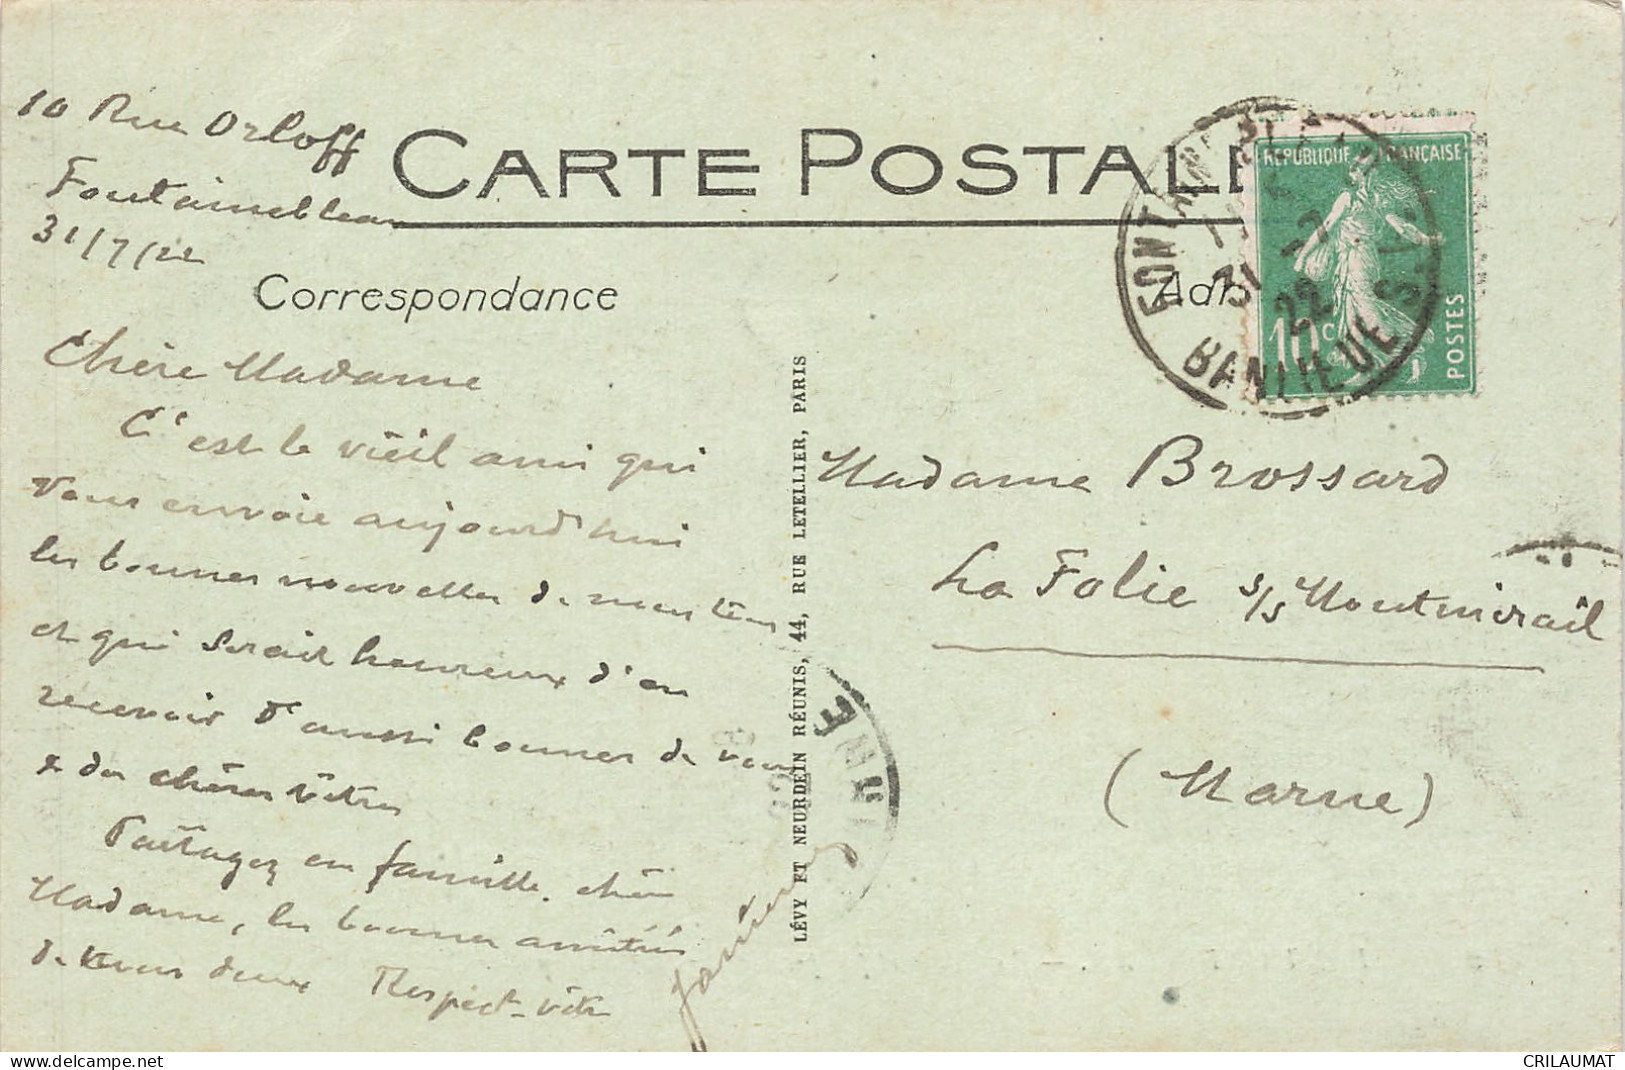 10 Rue Orloff
Fontainebleau
31/7/22
CARTE POSTALE
Correspondance
RÉPUBLIQUE FRANÇAISE
10c
POSTES
31
22
BANLIEUE
Chère Madame
C'est le vieil ami qui
vous envoie aujourd'hui
les bonnes nouvelles de nous tous
et qui serait heureux d'en
recevoir d'aussi bonnes de vous
& des chères vôtres
Partagez en famille, chère
Madame, les bonnes amitiés
de tous deux Respect. vôtre
LÉVY ET NEURDEIN RÉUNIS, 44, RUE LETELLIER, PARIS
Madame Brossard
La Folie s/s Montmirail
(Marne)
www.delcampe.net
CRILAUMAT